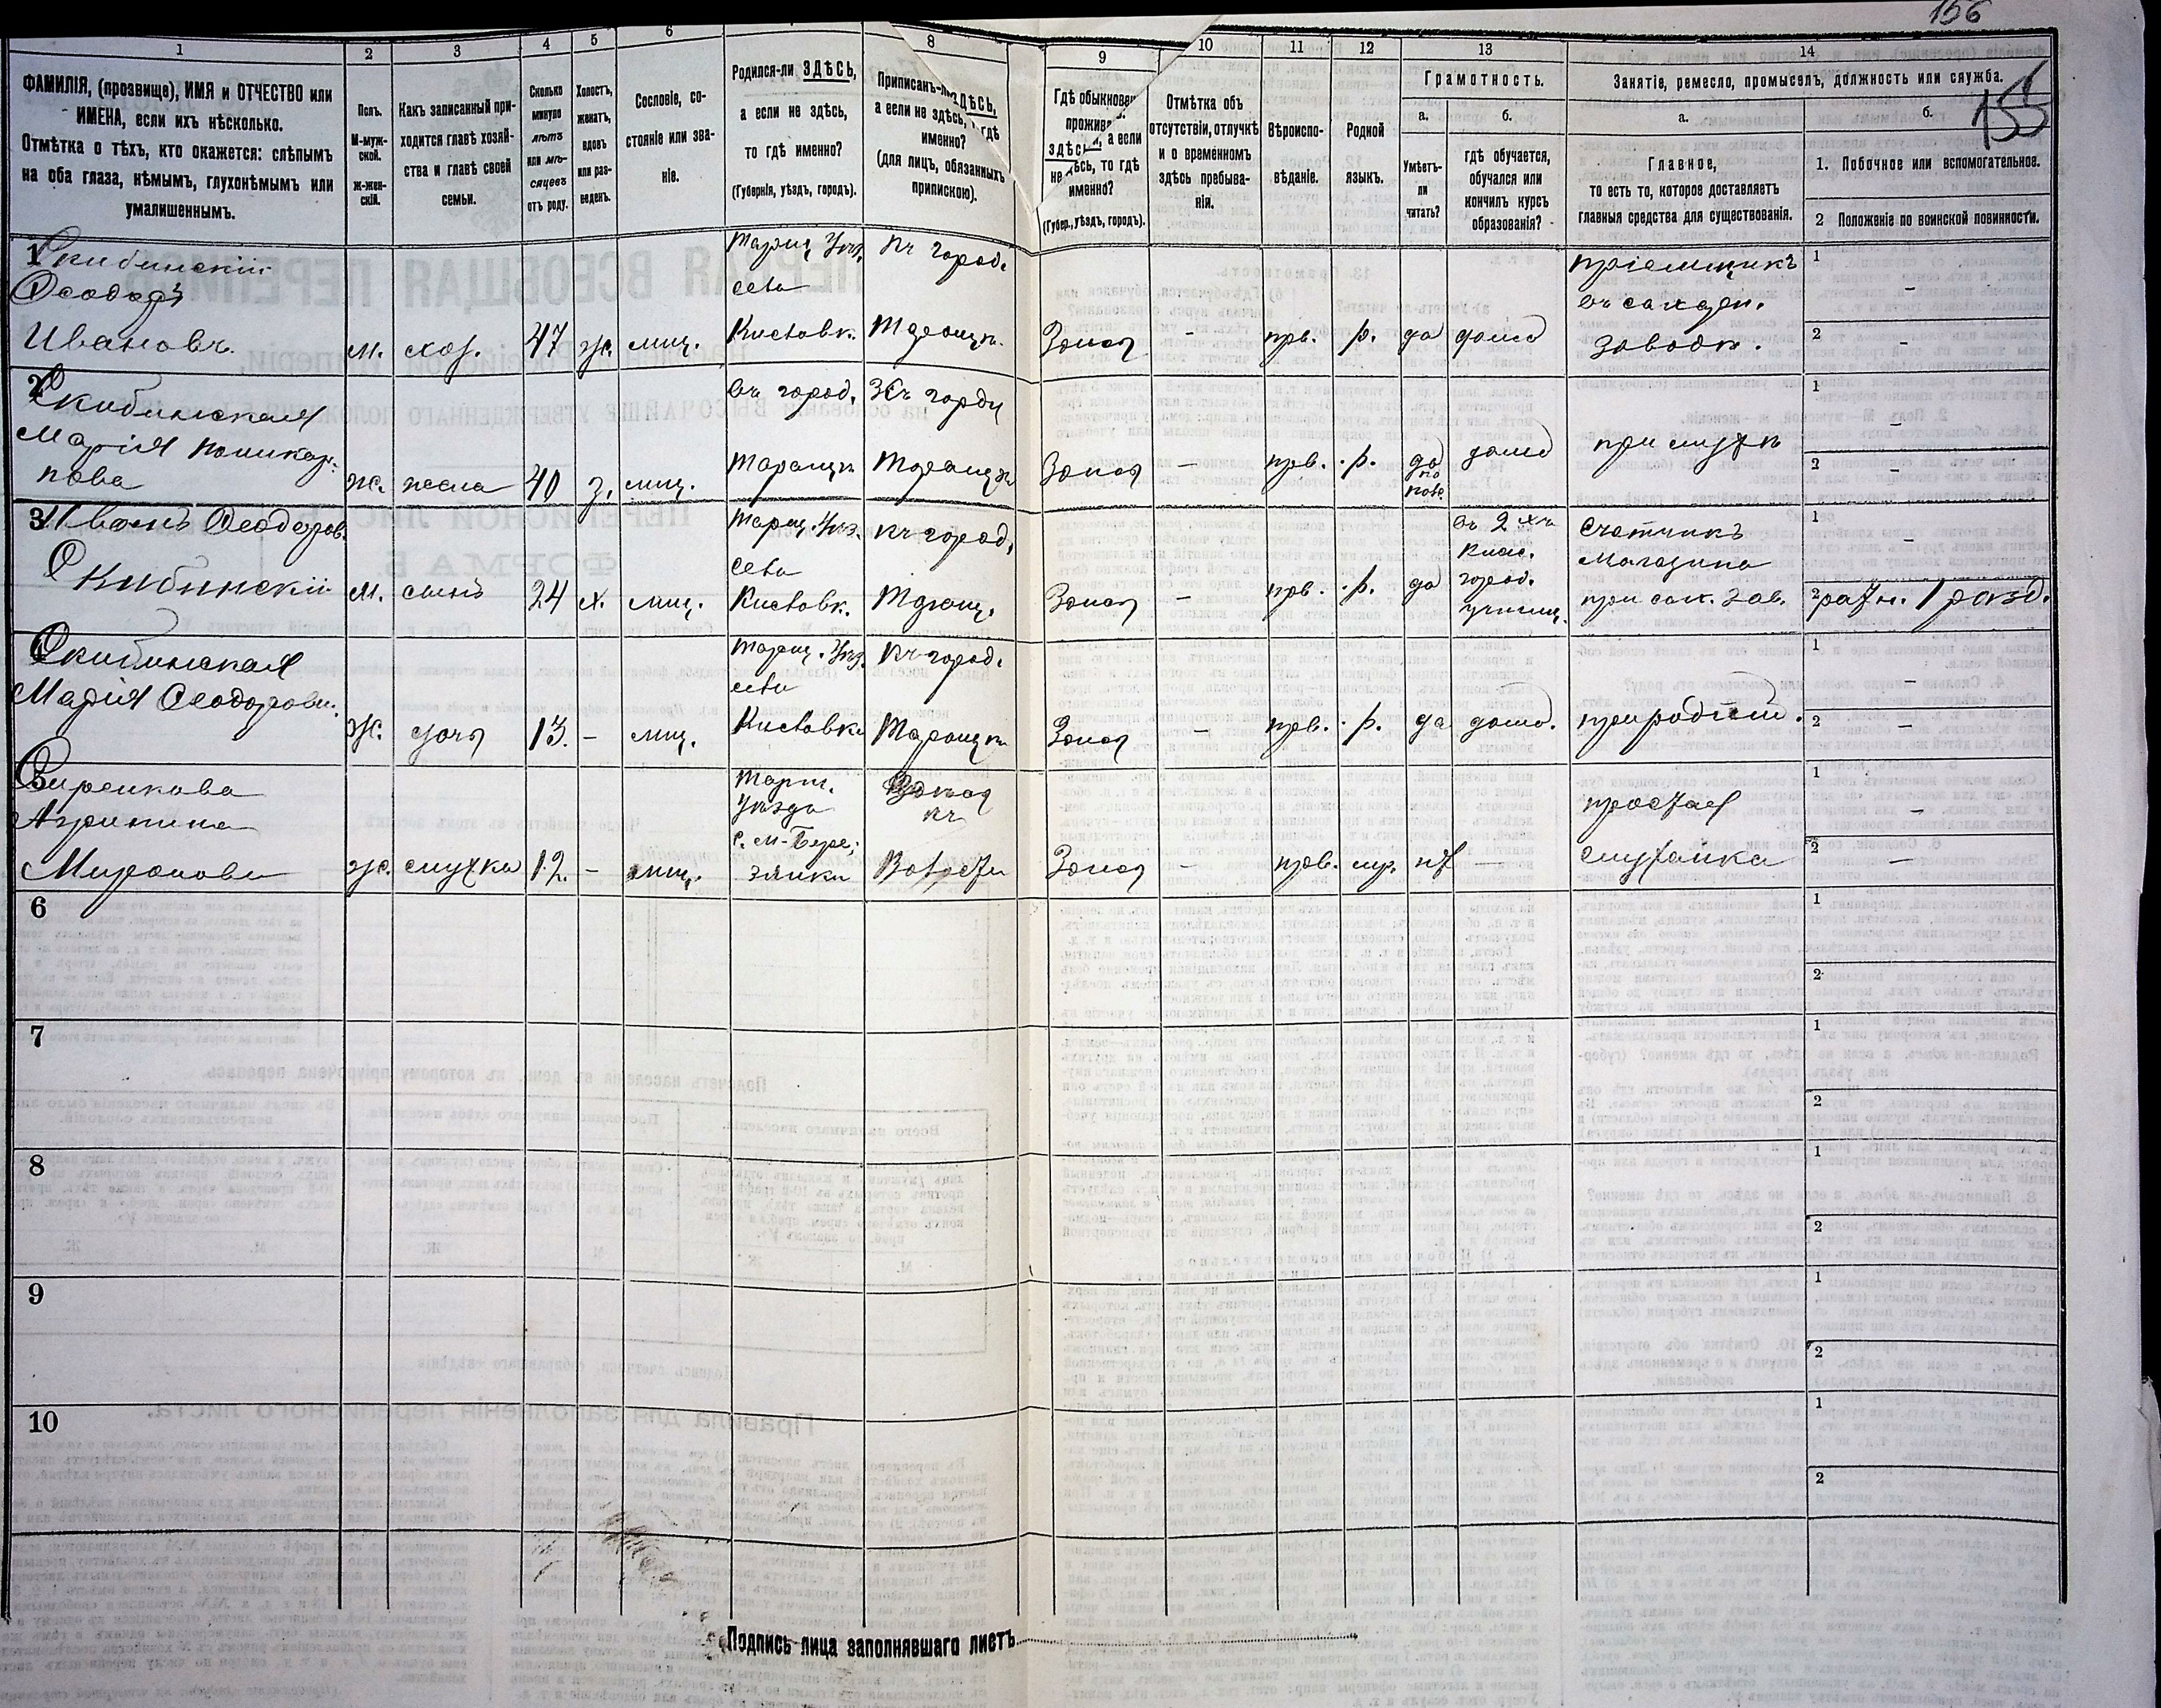 156
155
1
2
3
4
5
6
8
9
10
11
12
13
14
ФАМИЛІЯ, (прозвище), ИМЯ и ОТЧЕСТВО или
ИМЕНА, если ихъ нѣсколько.
Отмѣтка о тѣхъ, кто окажется: слѣпымъ
на оба глаза, нѣмымъ, глухонѣмымъ или
умалишеннымъ.
Полъ.
М-муж-
ской.
ж-жен-
скій.
Какъ записанный при-
ходится главѣ хозяй-
ства и главѣ своей
семьи.
Сколько
минуло
лѣтъ
или мѣ-
сяцевъ
отъ роду.
Холостъ,
женатъ,
вдовъ
или раз-
веденъ.
Сословіе, со-
стояніе или зва-
ніе.
Родился-ли ЗДѢСЬ,
а если не здѣсь,
то гдѣ именно?
(Губернія, уѣздъ, городъ).
ЗДѢСЬ,
а если не здѣсь, гдѣ
именно?
(для лицъ, обязанныхъ
припискою).
Гдѣ обыкновен
прожива
ЗДѢСЬ, а если
не здѣсь, то гдѣ
именно?
(Губер., уѣздъ, городъ).
Отмѣтка объ
отсутствіи, отлучкѣ
и о временномъ
здѣсь пребыва-
ніи.
Вѣроиспо-
вѣданіе.
Родной
языкъ.
Грамотность.
а.
Умѣетъ-
ли
читать?
б.
гдѣ обучается,
обучался или
кончилъ курсъ
образованія?
Занятіе, ремесло, промыселъ, должность или служба.
а.
Главное,
то есть то, которое доставляетъ
главныя средства для существованія.
б.
1. Побочное или вспомогательное.
2 Положеніе по воинской повинности.
1
Скибинскій
Ѳеодоръ
Ивановъ.
м.
хоз.
47
ж.
мщ.
Таращ. Уѣз.
села
Кисловк.
Къ город.
Таращѣ.
-
прв.
р.
да
дома
пріемщикъ
въ сахарн.
заводѣ.
1
-
2
-
2
Скибинская
Марія Поликар-
пова
ж.
жена
40
з.
мщ.
Въ город.
Таращѣ
-
прв.
р.
да
дома
при мужѣ
1
-
2
-
3
Иванъ Ѳеодоров.
Скибинскій
м.
сынъ
24
х.
мщ.
Таращ. Уѣз.
села
Кисловк.
Къ город.
Таращ.
-
прв.
р.
да
въ 2 хъ
клас.
город.
училищ.
Счетчикъ
Магазина
при сах. зав.
1
-
2
ратн. 1 разр.
Скибинская
Марія Ѳеодорова.
Ж.
дочь
13.
-
мщ.
Таращ. Уѣз.
села
Кисловка
Къ город.
Таращѣ
-
прв.
р.
да
дома.
при родит.
1
-
2
-
Агрипина
Миронова
ж.
служка
12.
-
Уѣзда
с. М-Бере-
зянки
Волости
-
прв.
мр.
нѣт
—
простая
служанка
1
-
2
-
6
1
2
7
1
2
8
1
2
9
1
2
10
1
2
Подпись лица заполнявшаго листъ